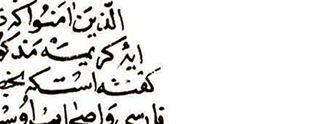 الَّذِينَ اٰمَنُوا كه
ايهٔ كريميسه مذكو
كفته است كه بخط
فارسى واصحاب اوس